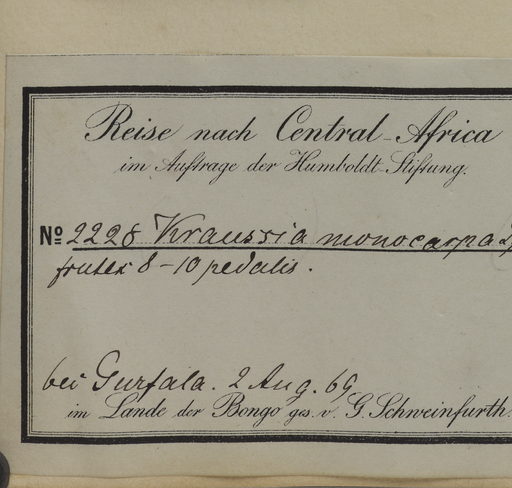 Reise nach Central-Africa
im Auftrage der Humboldt-Stiftung.
No 2228 Kraussia monocarpa
frutex 8-10 pedalis.
bei Gurfala. 2 Aug. 69
im Lande der Bongo ges. v. G. Schweinfurth.